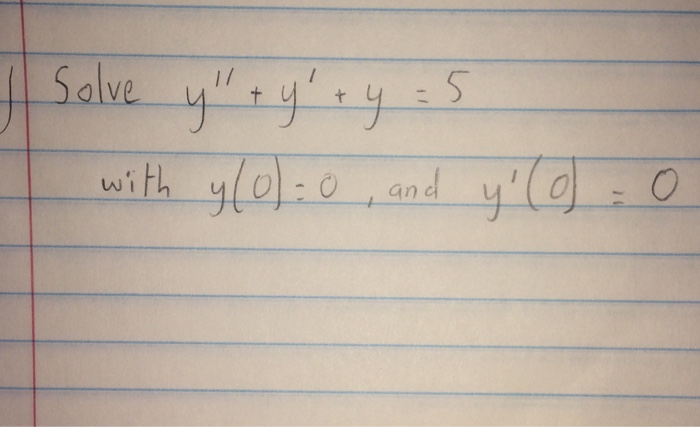 Solve y'' + y' + y = 5
with y(0) = 0, and y'(0) = 0